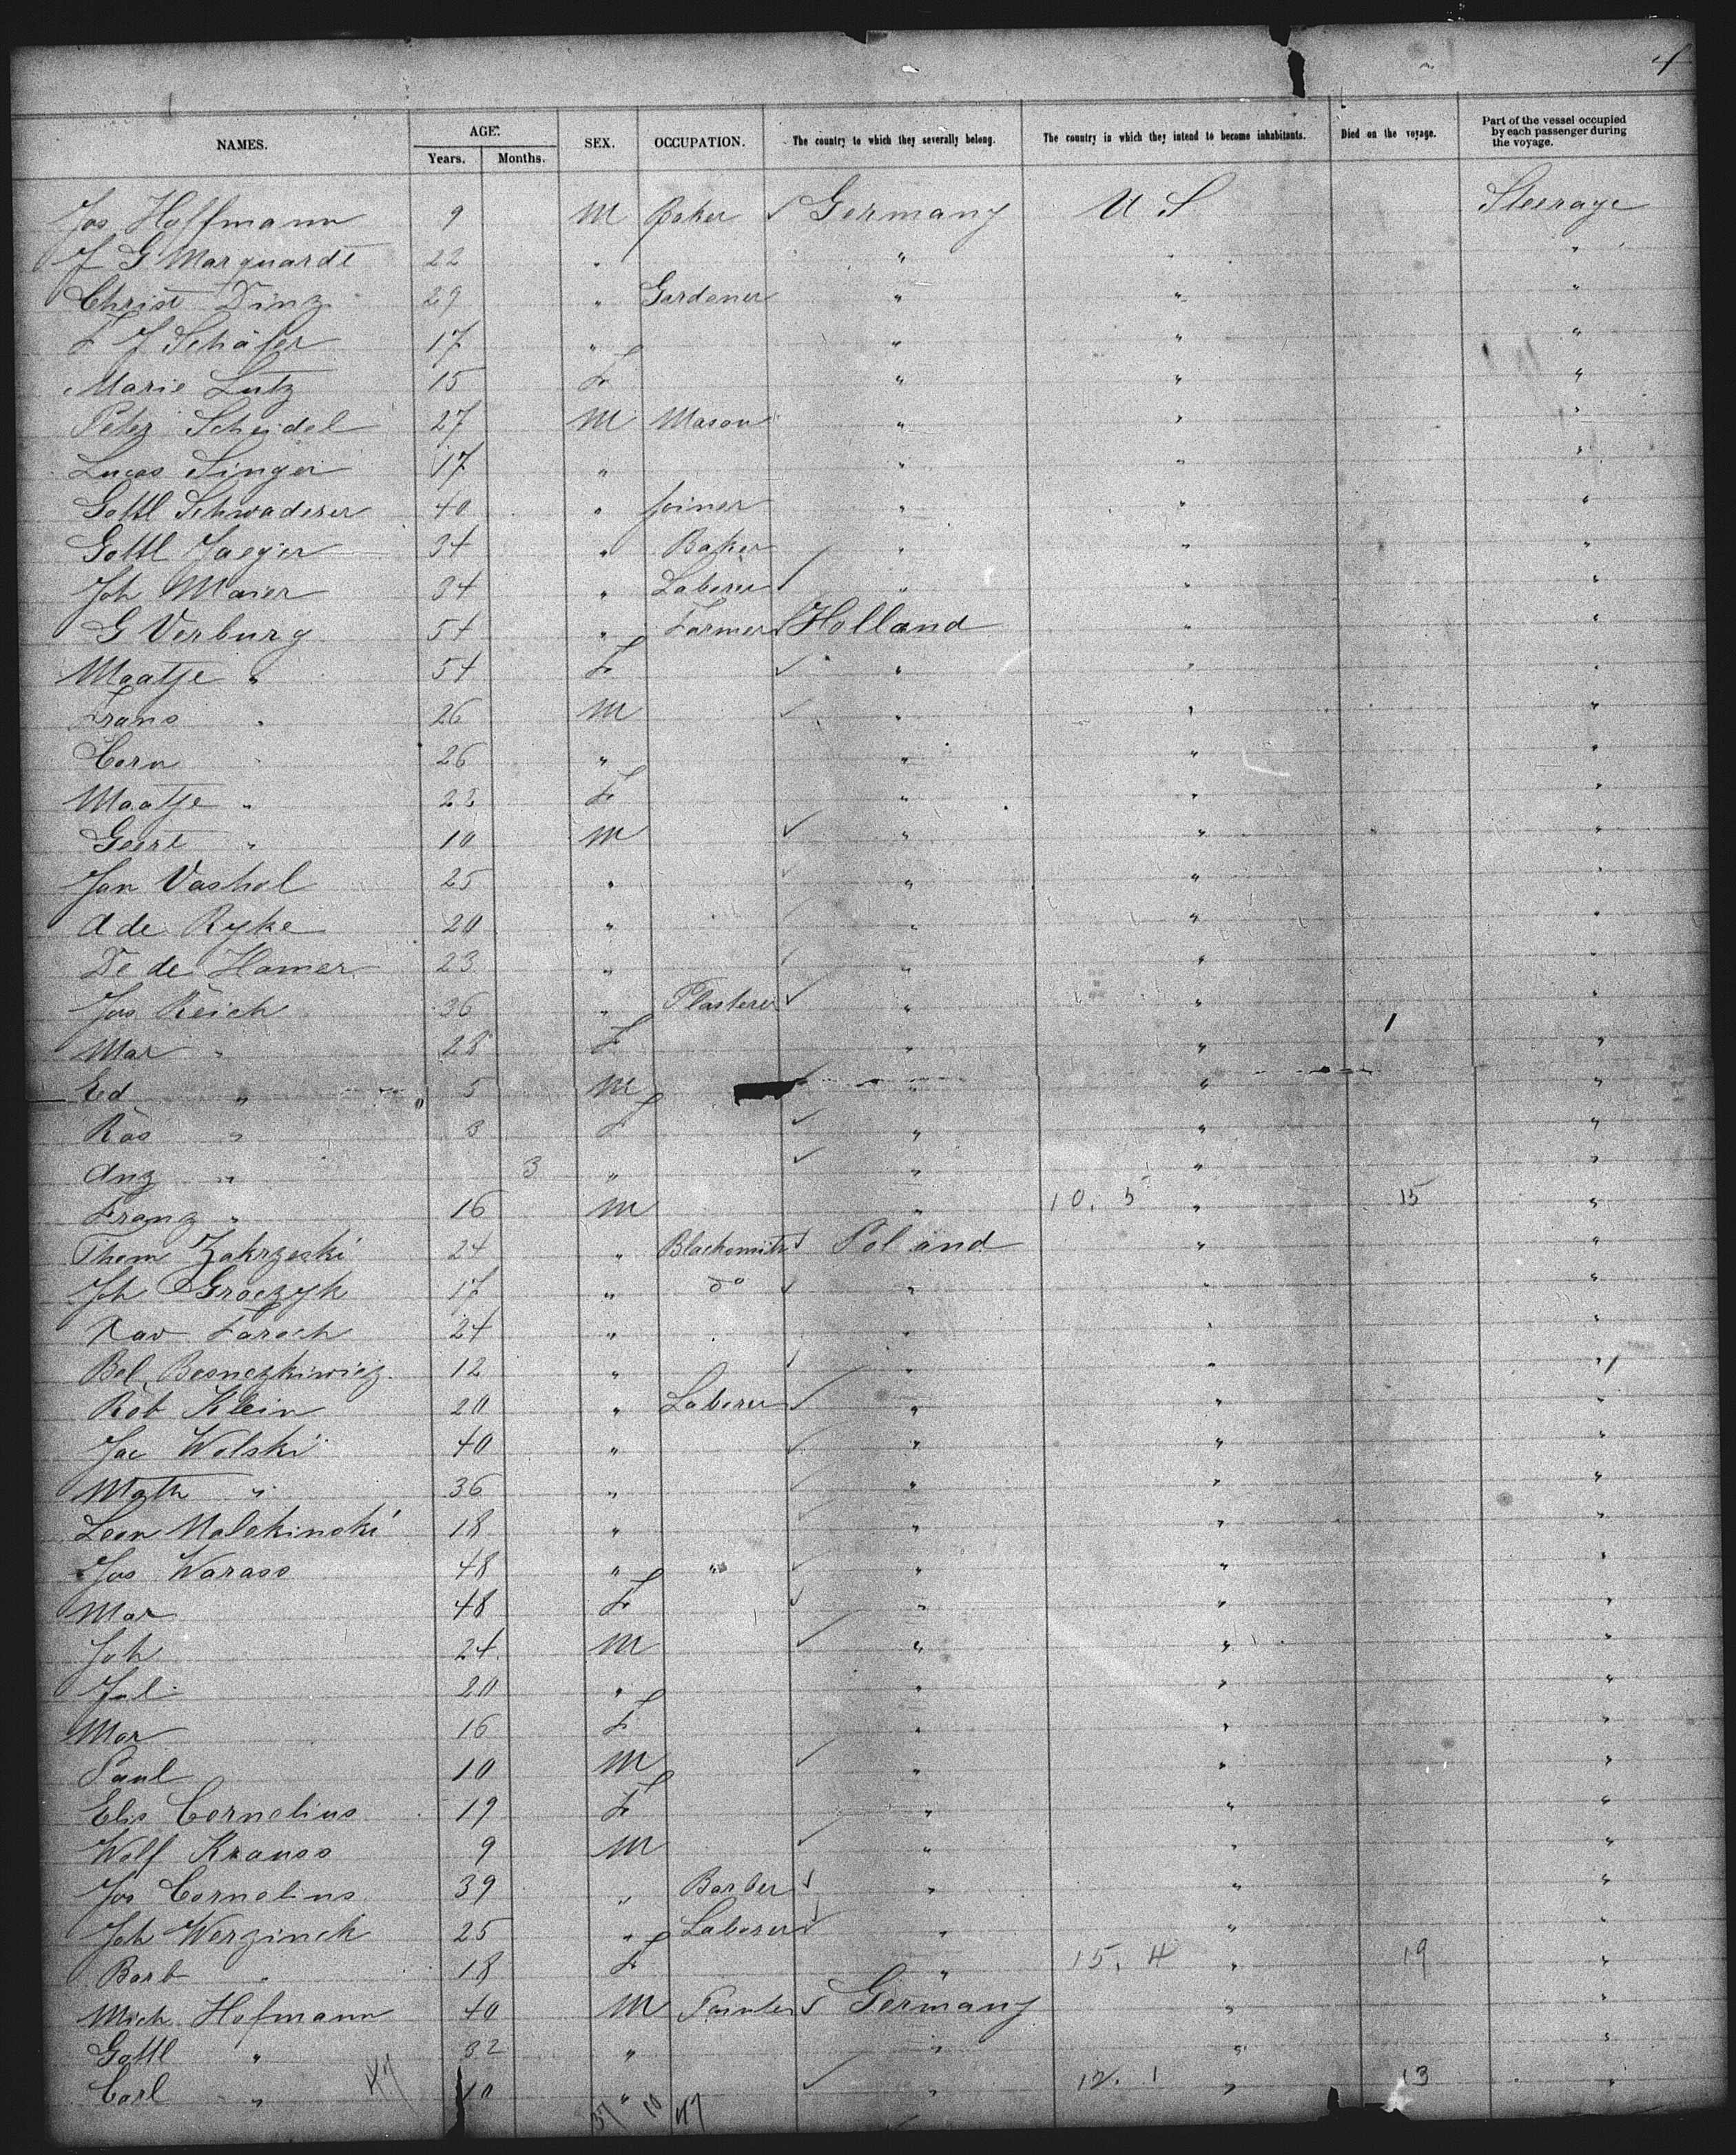 4
NAMES. AGE. Years. Months. SEX. OCCUPATION. The country to which they severally belong. The country in which they intend to become inhabitants. Died on the voyage. Part of the vessel occupied by each passenger during the voyage.
Jos Hoffmann 9 M Baker Germany U S Steerage
J G Marquardt 22 " " " "
Christ Dinz 29 " Gardener " " "
F J Schäfer 17 " " " "
Marie Lutz 15 F " " "
Peter Scheidel 27 M Mason " " "
Lucas Singer 17 " " " "
Gottl Schwaderer 40 " Joiner " " "
Gottl Jaeger 34 " Baker " " "
Joh Maier 34 " Laborer " " "
G Verburg 54 " Farmer Holland " "
Maatje " 54 F " " "
Frans " 26 M " " "
Corn " 26 " " " "
Maatje " 22 F " " "
Geert " 10 M " " "
Jan Vashol 25 " " " "
A de Ryke 20 " " " "
De de Hamer 23 " " " "
Jos Reich 36 " Plasterer " " "
Mar " 28 F " " "
Ed " 5 M " " "
Ros " 3 F " " "
Ang " 3 " " " "
Franz " 16 M " 10. 5 " 15 "
Thom Zakrzeski 24 " Blacksmith Poland " "
Joh Graczyk 17 " do " " "
Xav Farech 24 " " " "
Bol 12 " " " "
Rob Klein 20 " Laborer " " "
Jac Wolski 40 " " " "
Math " 36 " " " "
Leon Malekinski 18 " " " "
Jos Warass 48 " " " " "
Mar 48 F " " "
Joh 24 M " " "
Jul 20 " " " "
Mar 16 F " " "
Paul 10 M " " "
Elis Cornelius 19 F " " "
Wolf Krauss 9 M " " "
Jos Cornelius 39 " Barber " " "
Joh Werzinck 25 " Laborer " " "
Barb " 18 F " 15. 4 " 19 "
Mich Hofmann 40 M Painter Germany " "
Gottl " 32 " " " "
Carl " 10 " " 12. 1 " 13 "
47 37 10 47